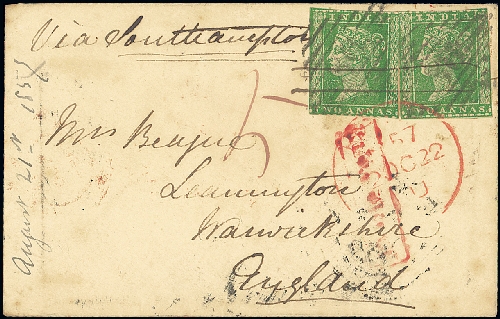 Via Southampton
INDIA INDIA
TWO ANNAS. TWO ANNAS.
Mrs
Leamington
Warwickshire
England
57
OC 22
August 21st 1857